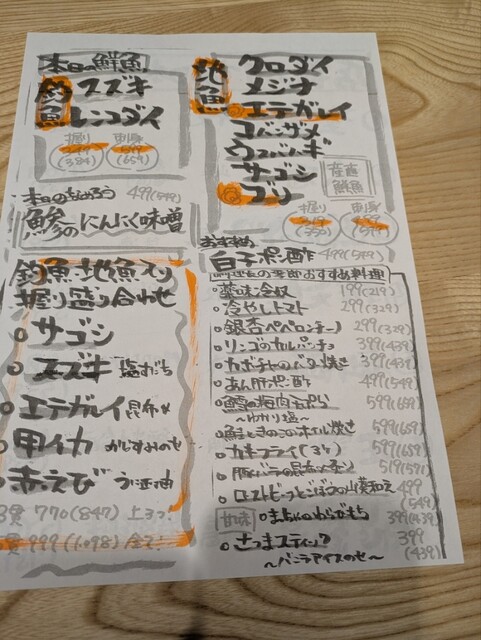 本日の鮮魚
釣魚
スズキ
レンコダイ
握り
刺身
(384)
(659)
地魚
クロダイ
メジナ
エテガレイ
コバンザメ
ウスバハギ
サゴシ
ブリ
産直鮮魚
握り
刺身
本日のなめろう 499(549)
鯵のにんにく味噌
おすすめ
白子ポン酢 499(549)
季節おすすめ料理
釣魚・地魚入り
握り盛り合わせ
サゴシ
スズキ 塩すだち
エテガレイ 昆布〆
甲イカ
赤えび うに醤油
3貫 770(847) 上3つ!
貫 999(1,098) 全て!
薬味冷奴 199(219)
冷やしトマト 299(329)
銀杏ペペロンチーノ 299(329)
リンゴのカルパッチョ 399(439)
カボチャのバター焼き 399(439)
あん肝ポン酢 499(549)
鱈の梅肉天ぷら 599(659)
~ゆかり塩~
鮭ときのこのホイル焼き 599(659)
カキフライ(3ヶ) 599(659)
豚バラの昆布〆ポン 519(571)
ローストビーフとごぼうの山葵和え 499
(549)
甘味
まっちゃのわらびもち 399(439)
さつまスティック 399
(439)
~バニラアイスのせ~